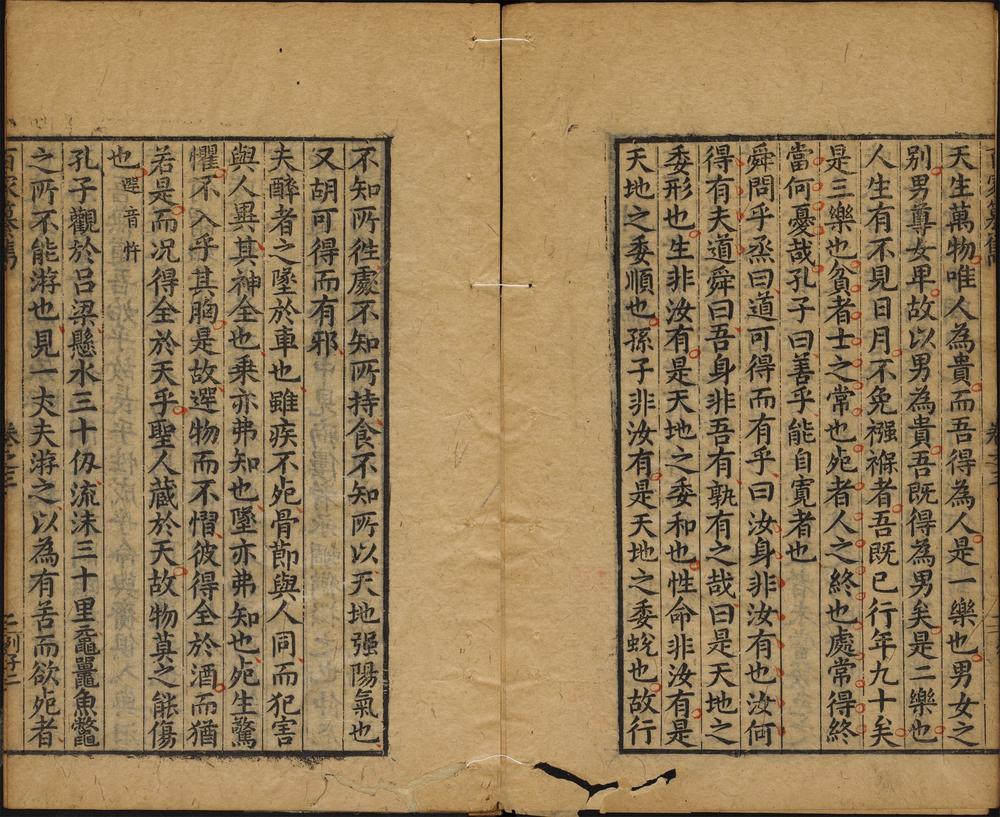 天生萬物唯人為貴而吾得為人是一樂也男女之
別男尊女卑故以男為貴吾既得為男矣是二樂也
人生有不見日月不免襁褓者吾既已行年九十矣
是三樂也貧者士之常也死者人之終也處常得終
當何憂哉孔子曰善乎能自寛者也
舜問乎烝曰道可得而有乎曰汝身非汝有也汝何
得有夫道舜曰吾身非吾有孰有之哉曰是天地之
委形也生非汝有是天地之委和也性命非汝有是
天地之委順也孫子非汝有是天地之委蛻也故行
不知所徃處不知所持食不知所以天地强陽氣也
又胡可得而有邪
夫醉者之墜於車也雖疾不死骨節與人同而犯害
與人異其神全也乗亦弗知也墜亦弗知也死生驚
懼不入乎其胸是故遻物而不慴彼得全於酒而猶
若是而況得全於天乎聖人藏於天故物莫之能傷
也遻音忤
孔子觀於吕梁懸水三十仭流沫三十里黿鼉魚鱉
之所不能游也見一丈夫游之以為有苦而欲死者